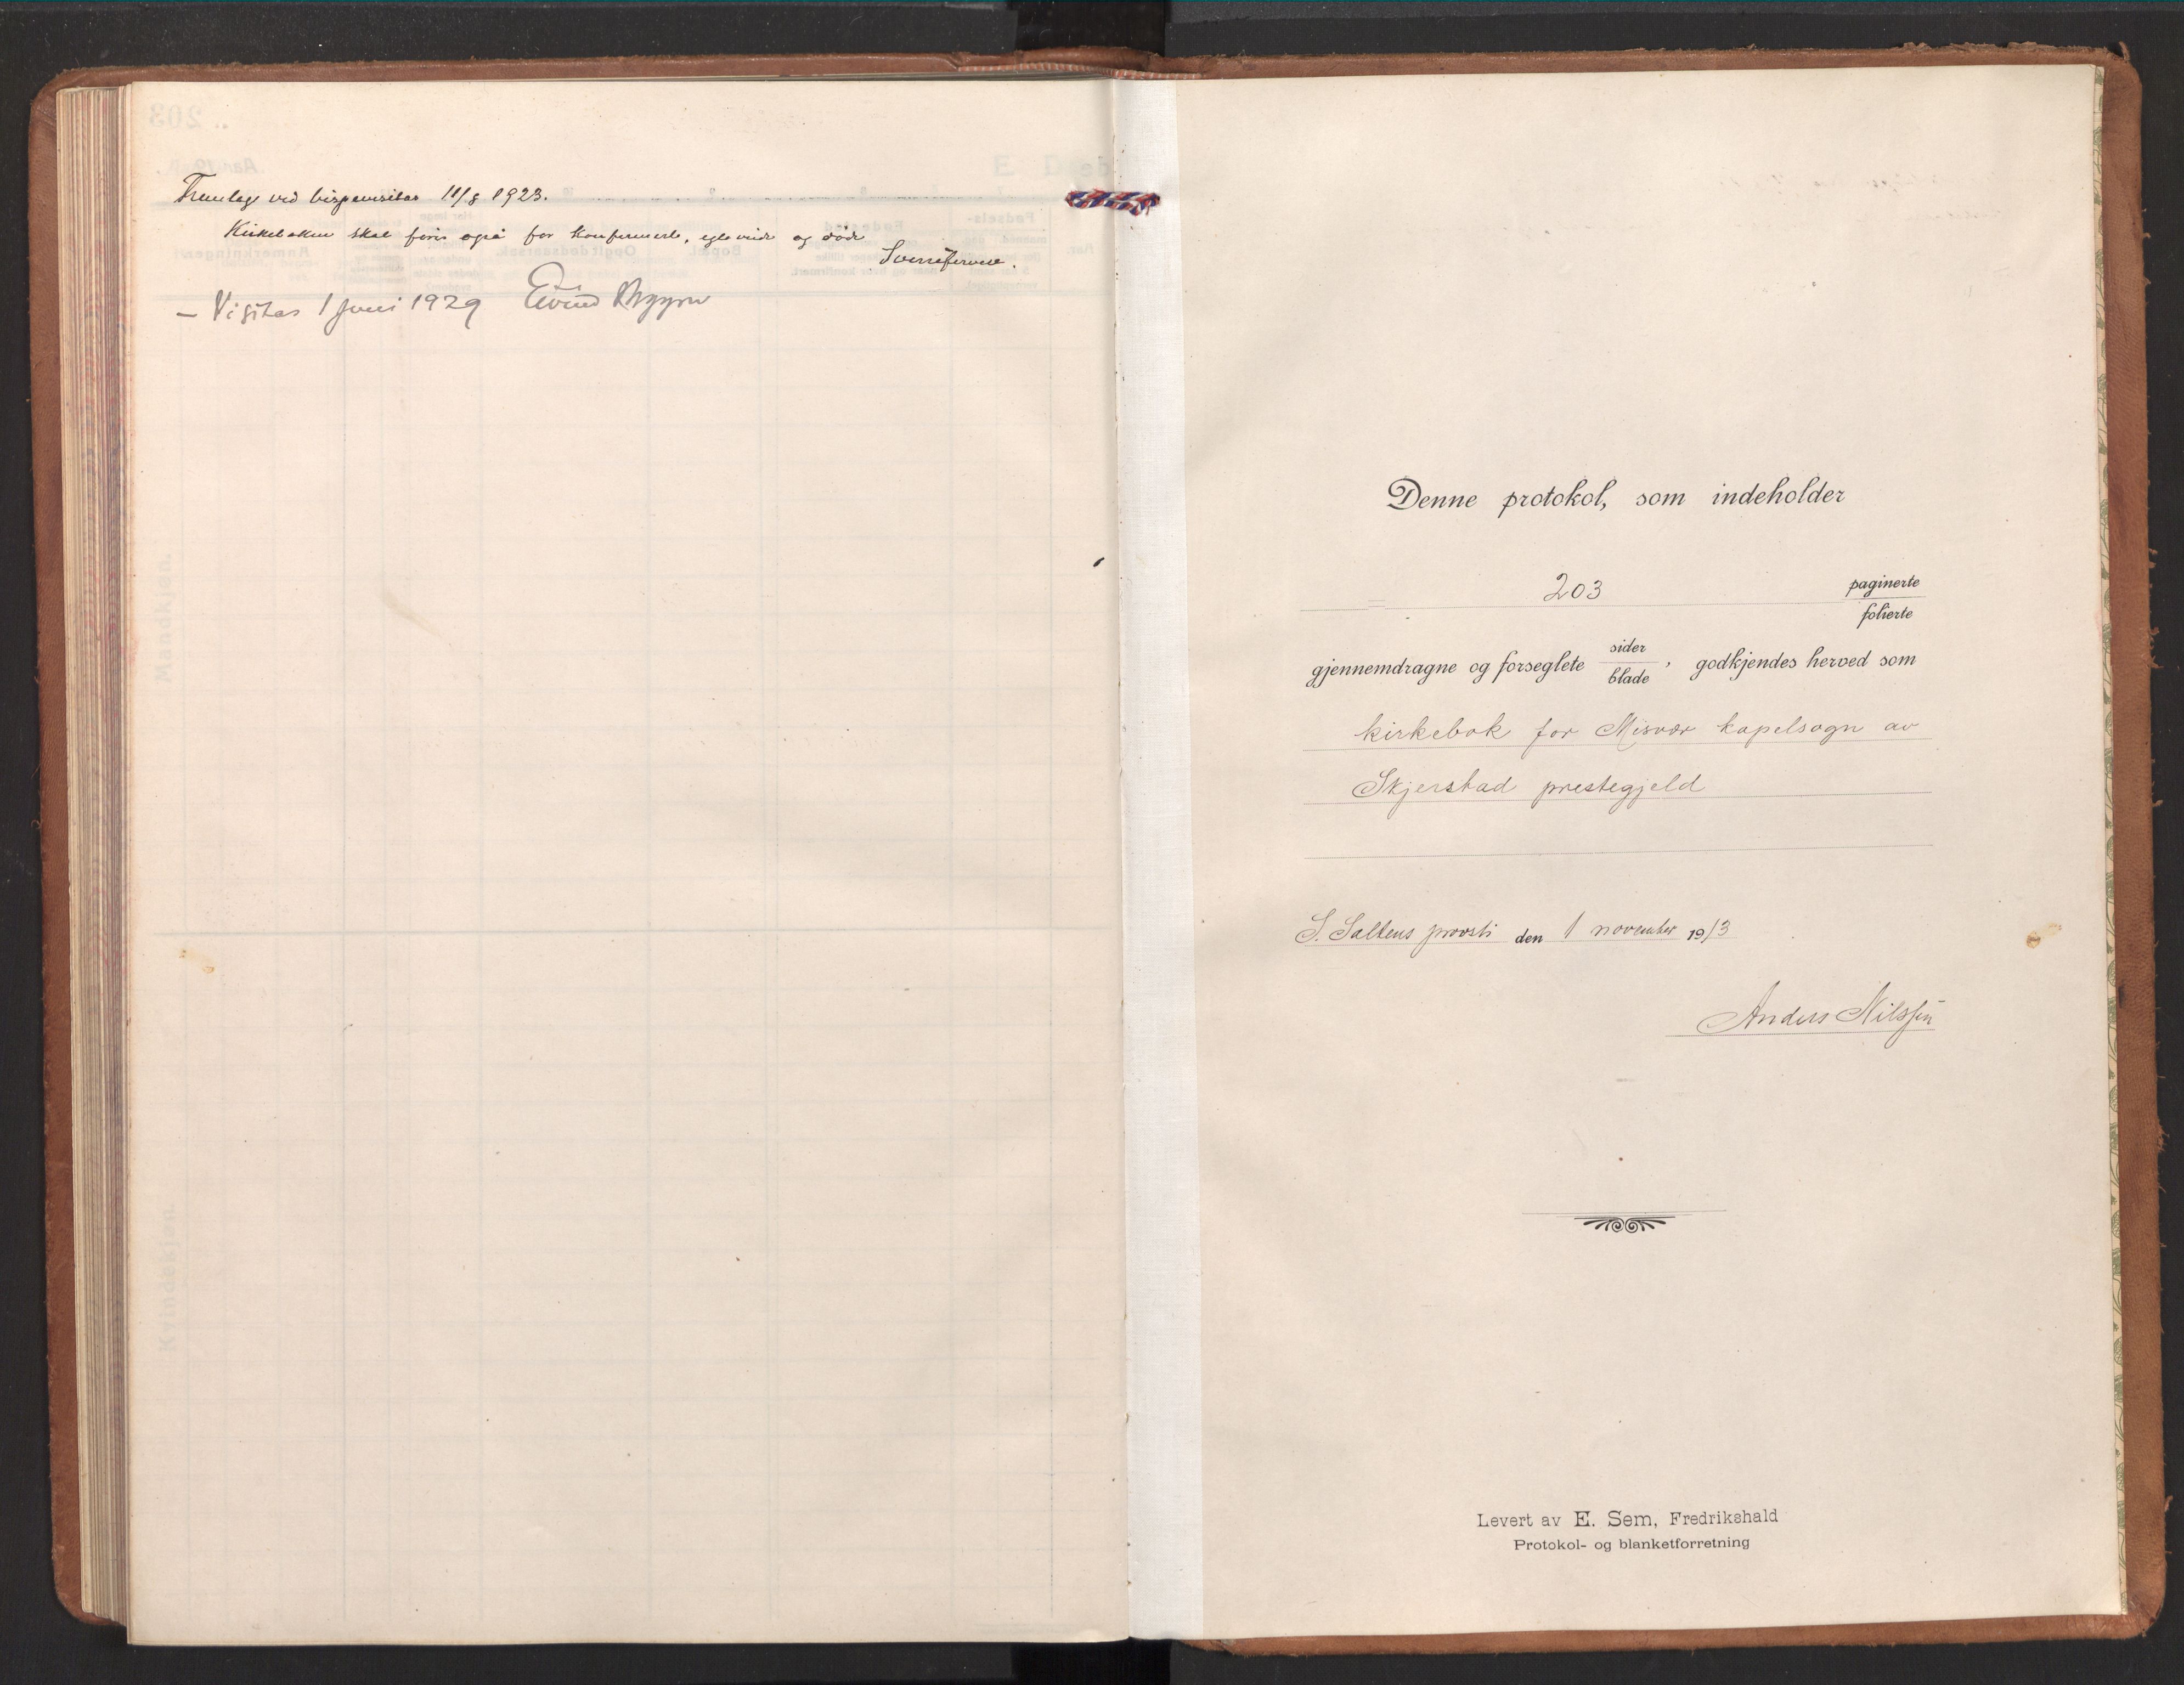 Fremlagt ved bispevisitas 11/8 1923.
Kirkeboken skal føres også for konfirmerte, egteviede og døde
– Visitas 1 Juni 1929 Eivind Berggrav
Denne protokol, som indeholder
203 paginerte
folierte
gjennemdragne og forseglete sider
blade, godkjendes herved som
kirkebok for Misvær kapelsogn av
Skjerstad prestegjeld
S. Saltens provsti den 1 november 1913
Anders Nilssen
Levert av E. Sem, Fredrikshald
Protokol- og blanketforretning